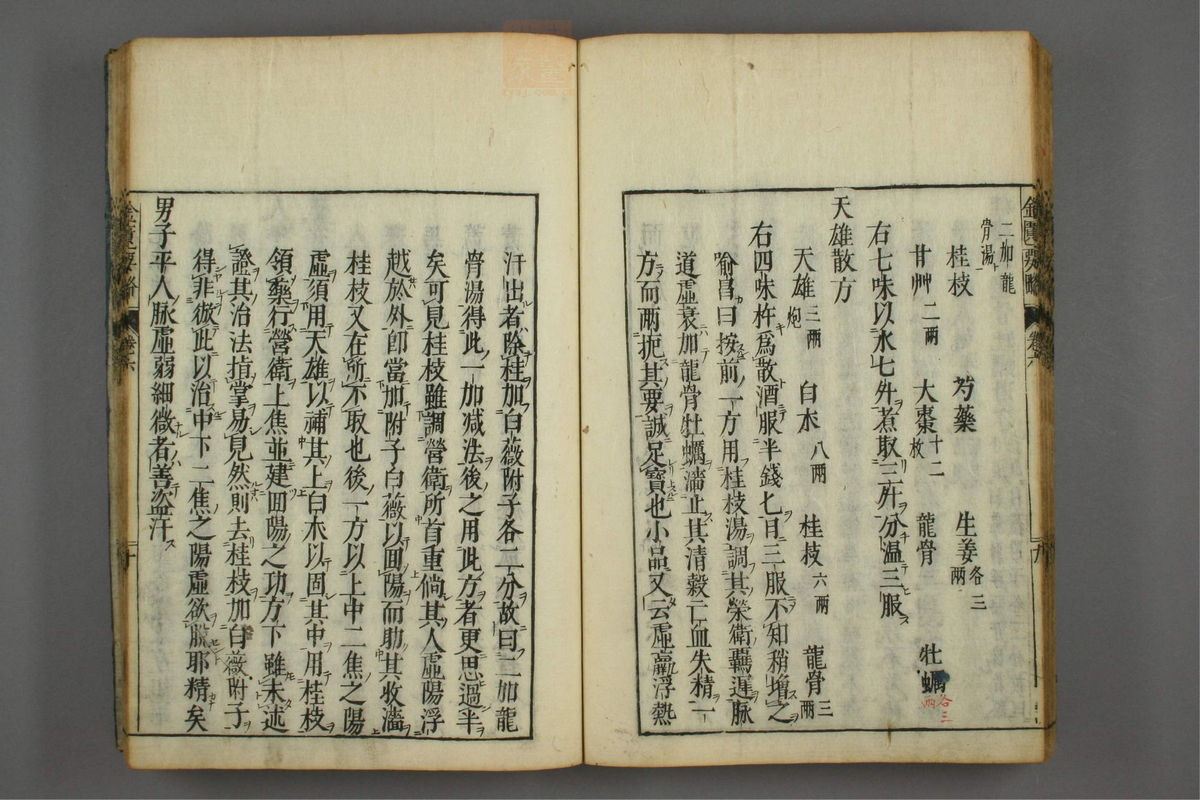 金匱要略 卷六 九
二加龍
骨湯
桂枝 芍藥 生姜各三兩
甘艸二兩 大棗十二枚 龍骨三 牡蠣各三兩
右七味以水七升煮取三升分温三服
天雄散方
天雄三兩炮 白朮八兩 桂枝六兩 龍骨三兩
右四味杵爲散酒服半錢七日三服不知稍增之
喻昌曰按前一方用桂枝湯調其榮衛羈遲脉
道虛衰加龍骨牡蠣濇止其清穀亡血失精一
方而兩扼其要誠足寶也小品又云虛羸浮熱
汗出者除桂加白薇附子各二分故曰二加龍
骨湯得此一加減法後之用此方者更思過半
矣可見桂枝雖調營衛所首重倘其人虛陽浮
越於外卽當加附子白薇以囬陽而助其收濇
桂枝又在所不取也後一方以上中二焦之陽
虛須用天雄以補其上白朮以固其中用桂枝
領藥行營衛上焦並建囬陽之功方下雖未述
證其治法指掌易見然則去桂枝加白薇附子
得非倣此以治中下二焦之陽虛欲脫耶精矣
男子平人脉虛弱細微者善盜汗
金匱要略 卷六 十